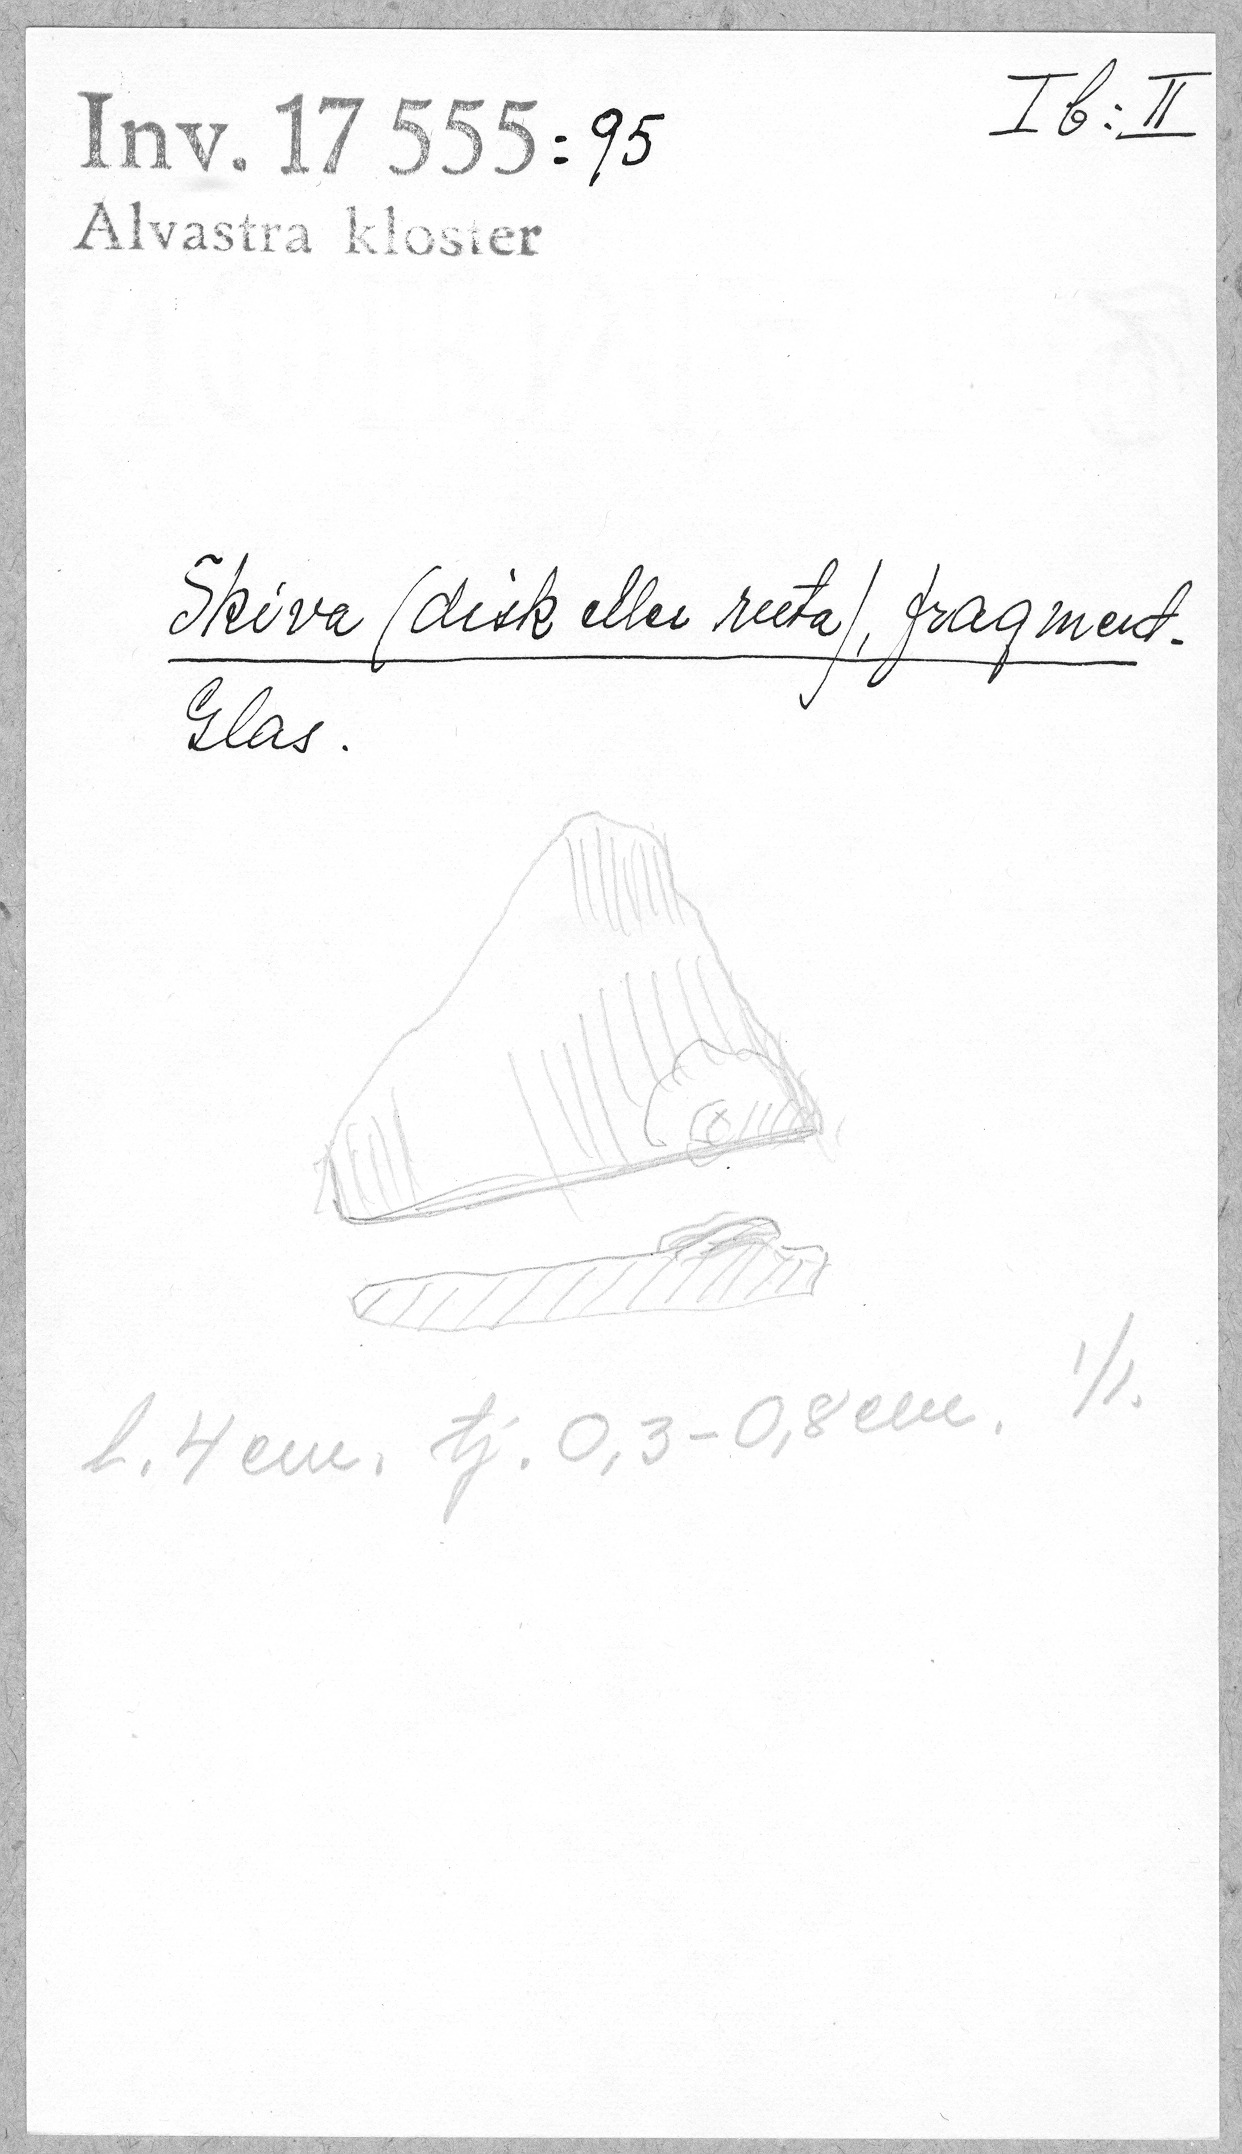 Inv. 17 555:95
I b: II
Alvastra kloster
Skiva (disk eller ruta), fragment.
Glas.
l. 4 cm. tj. 0,3-0,8 cm. 1/1.